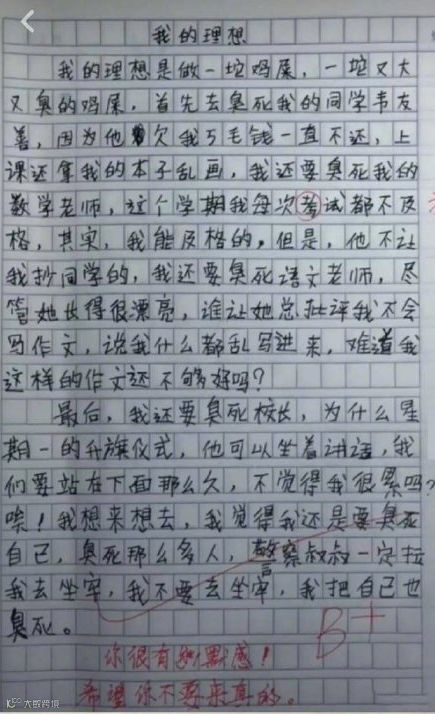 我的理想
我的理想是做一坨鸡屎，一坨又大
又臭的鸡屎，首先去臭死我的同学韦友
善，因为他欠我5毛钱一直不还，上
课还拿我的本子乱画，我还要臭死我的
数学老师，这个学期我每次考试都不及
格，其实，我能及格的，但是，他不让
我抄同学的，我还要臭死语文老师，尽
管她长得很漂亮，谁让她总批评我不会
写作文，说我什么都乱写进来，难道我
这样的作文还不够好吗？
最后，我还要臭死校长，为什么星
期一的升旗仪式，他可以坐着讲话，我
们要站在下面那么久，不觉得我很累吗？
唉！我想来想去，我觉得我还是要臭死
自己，臭死那么多人，警察叔叔一定拉
我去坐牢，我不要去坐牢，我把自己也
臭死。
B+
你很有幽默感！
希望你不要来真的。
大数跨境